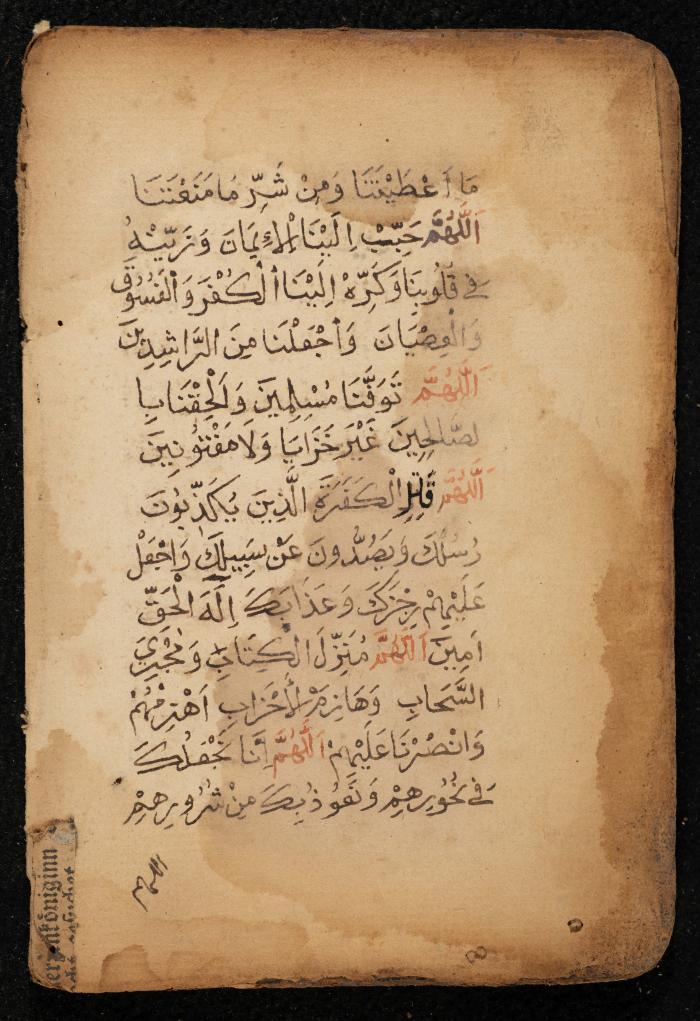 مَا اَعْطَيْتَنَا وَمِنْ شَرِّ مَا مَنَعْتَنَا
اَللّٰهُمَّ حَبِّبْ اِلَيْنَا الْاِيمَانَ وَزَيِّنْهُ
فِى قُلُوبِنَا وَكَرِّهْ اِلَيْنَا الْكُفْرَ وَالْفُسُوقَ
وَالْعِصْيَانَ وَاجْعَلْنَا مِنَ الرَّاشِدِينَ
اَللّٰهُمَّ تَوَفَّنَا مُسْلِمِينَ وَاَلْحِقْنَا بِا
لصَّالِحِينَ غَيْرَ خَزَايَا وَلَا مَفْتُونِينَ
اَللّٰهُمَّ قَاتِلِ الْكَفَرَةَ الَّذِينَ يُكَذِّبُونَ
رُسُلَكَ وَيَصُدُّونَ عَنْ سَبِيلِكَ وَاجْعَلْ
عَلَيْهِمْ رِجْزَكَ وَعَذَابَكَ اِلٰهَ الْحَقِّ
اٰمِينَ اَللّٰهُمَّ مُنَزِّلَ الْكِتَابِ وَمُجْرِىَ
السَّحَابِ وَهَازِمَ الْاَحْزَابِ اَهْزِمْهُمْ
وَانْصُرْنَا عَلَيْهِمْ اَللّٰهُمَّ اِنَّا نَجْعَلُكَ
فِى نُحُورِهِمْ وَنَعُوذُ بِكَ مِنْ شُرُورِهِمْ
اللهم
königinn